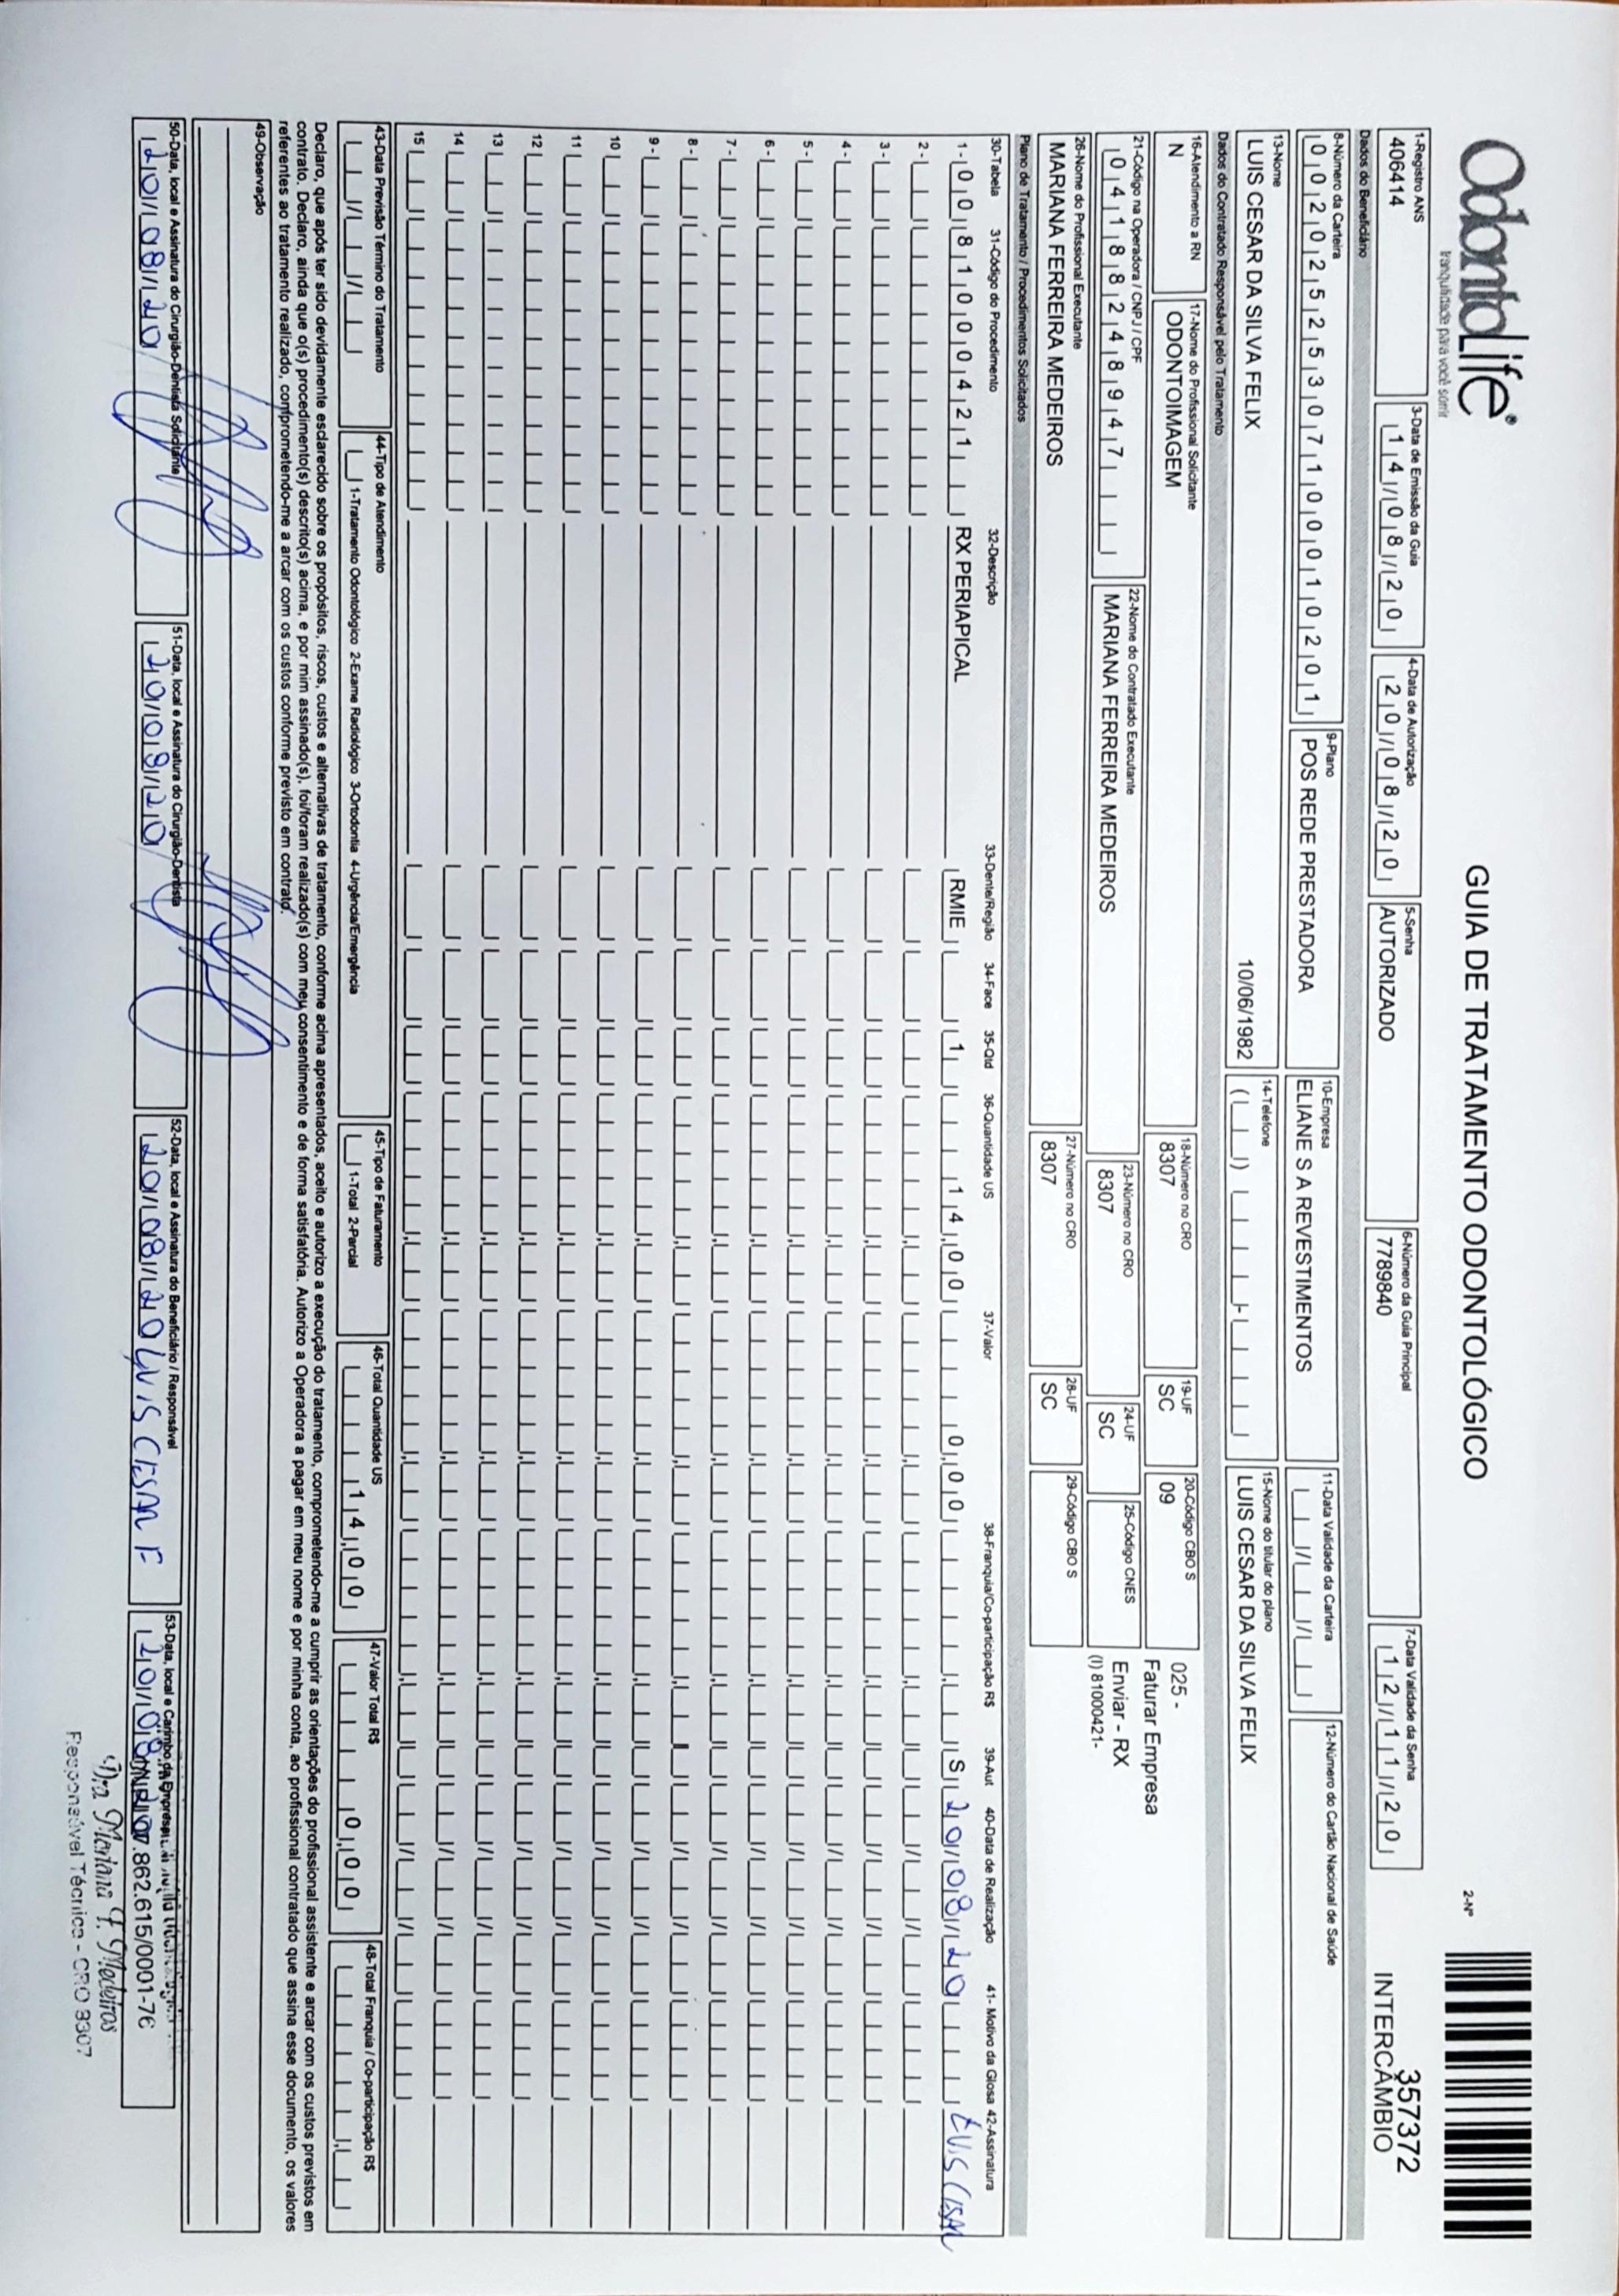 OdontoLife®
tranquilidade para você sorrir
GUIA DE TRATAMENTO ODONTOLÓGICO
2-Nº
357372
INTERCÂMBIO
1-Registro ANS
406414
3-Data de Emissão da Guia
14/08/20
4-Data de Autorização
20/08/20
5-Senha
AUTORIZADO
6-Número da Guia Principal
7789840
7-Data Validade da Senha
12/11/20
Dados do Beneficiário
8-Número da Carteira
00202525307100010201
9-Plano
POS REDE PRESTADORA
10-Empresa
ELIANE S A REVESTIMENTOS
11-Data Validade da Carteira
12-Número do Cartão Nacional de Saúde
13-Nome
LUIS CESAR DA SILVA FELIX 10/06/1982
14-Telefone
15-Nome do titular do plano
LUIS CESAR DA SILVA FELIX
Dados do Contratado Responsável pelo Tratamento
16-Atendimento a RN
N
17-Nome do Profissional Solicitante
ODONTOIMAGEM
18-Número no CRO
8307
19-UF
SC
20-Código CBO S
09
025 -
Faturar Empresa
Enviar - RX
(I) 81000421-
21-Código na Operadora / CNPJ / CPF
04188248947
22-Nome do Contratado Executante
MARIANA FERREIRA MEDEIROS
23-Número no CRO
8307
24-UF
SC
25-Código CNES
26-Nome do Profissional Executante
MARIANA FERREIRA MEDEIROS
27-Número no CRO
8307
28-UF
SC
29-Código CBO S
Plano de Tratamento / Procedimentos Solicitados
30-Tabela 31-Código do Procedimento 32-Descrição 33-Dente/Região 34-Face 35-Qtd 36-Quantidade US 37-Valor 38-Franquia/Co-participação R$ 39-Aut 40-Data de Realização 41- Motivo da Glosa 42-Assinatura
1- 00 81000421 RX PERIAPICAL RMIE 1 14,00 0,00 S 20/08/20 LUIS CESAR
2 -
3 -
4 -
5 -
6 -
7 -
8 -
9 -
10
11
12
13
14
15
43-Data Previsão Término do Tratamento
44-Tipo de Atendimento
1-Tratamento Odontológico 2-Exame Radiológico 3-Ortodontia 4-Urgência/Emergência
45-Tipo de Faturamento
1-Total 2-Parcial
46-Total Quantidade US
14,00
47-Valor Total R$
0,00
48-Total Franquia / Co-participação R$
Declaro, que após ter sido devidamente esclarecido sobre os propósitos, riscos, custos e alternativas de tratamento, conforme acima apresentados, aceito e autorizo a execução do tratamento, comprometendo-me a cumprir as orientações do profissional assistente e arcar com os custos previstos em
contrato. Declaro, ainda que o(s) procedimento(s) descrito(s) acima, e por mim assinado(s), foi/foram realizado(s) com meu consentimento e de forma satisfatória. Autorizo a Operadora a pagar em meu nome e por minha conta, ao profissional contratado que assina esse documento, os valores
referentes ao tratamento realizado, comprometendo-me a arcar com os custos conforme previsto em contrato.
49-Observação
50-Data, local e Assinatura do Cirurgião-Dentista Solicitante
20/08/20
51-Data, local e Assinatura do Cirurgião-Dentista
20/08/20
52-Data, local e Assinatura do Beneficiário / Responsável
20/08/20 LUIS CESAR F
53-Data, local e Carimbo da Empresa
20/08
.862.615/0001-76
Dra Mariana F. Medeiros
Responsável Técnica - CRO 8307